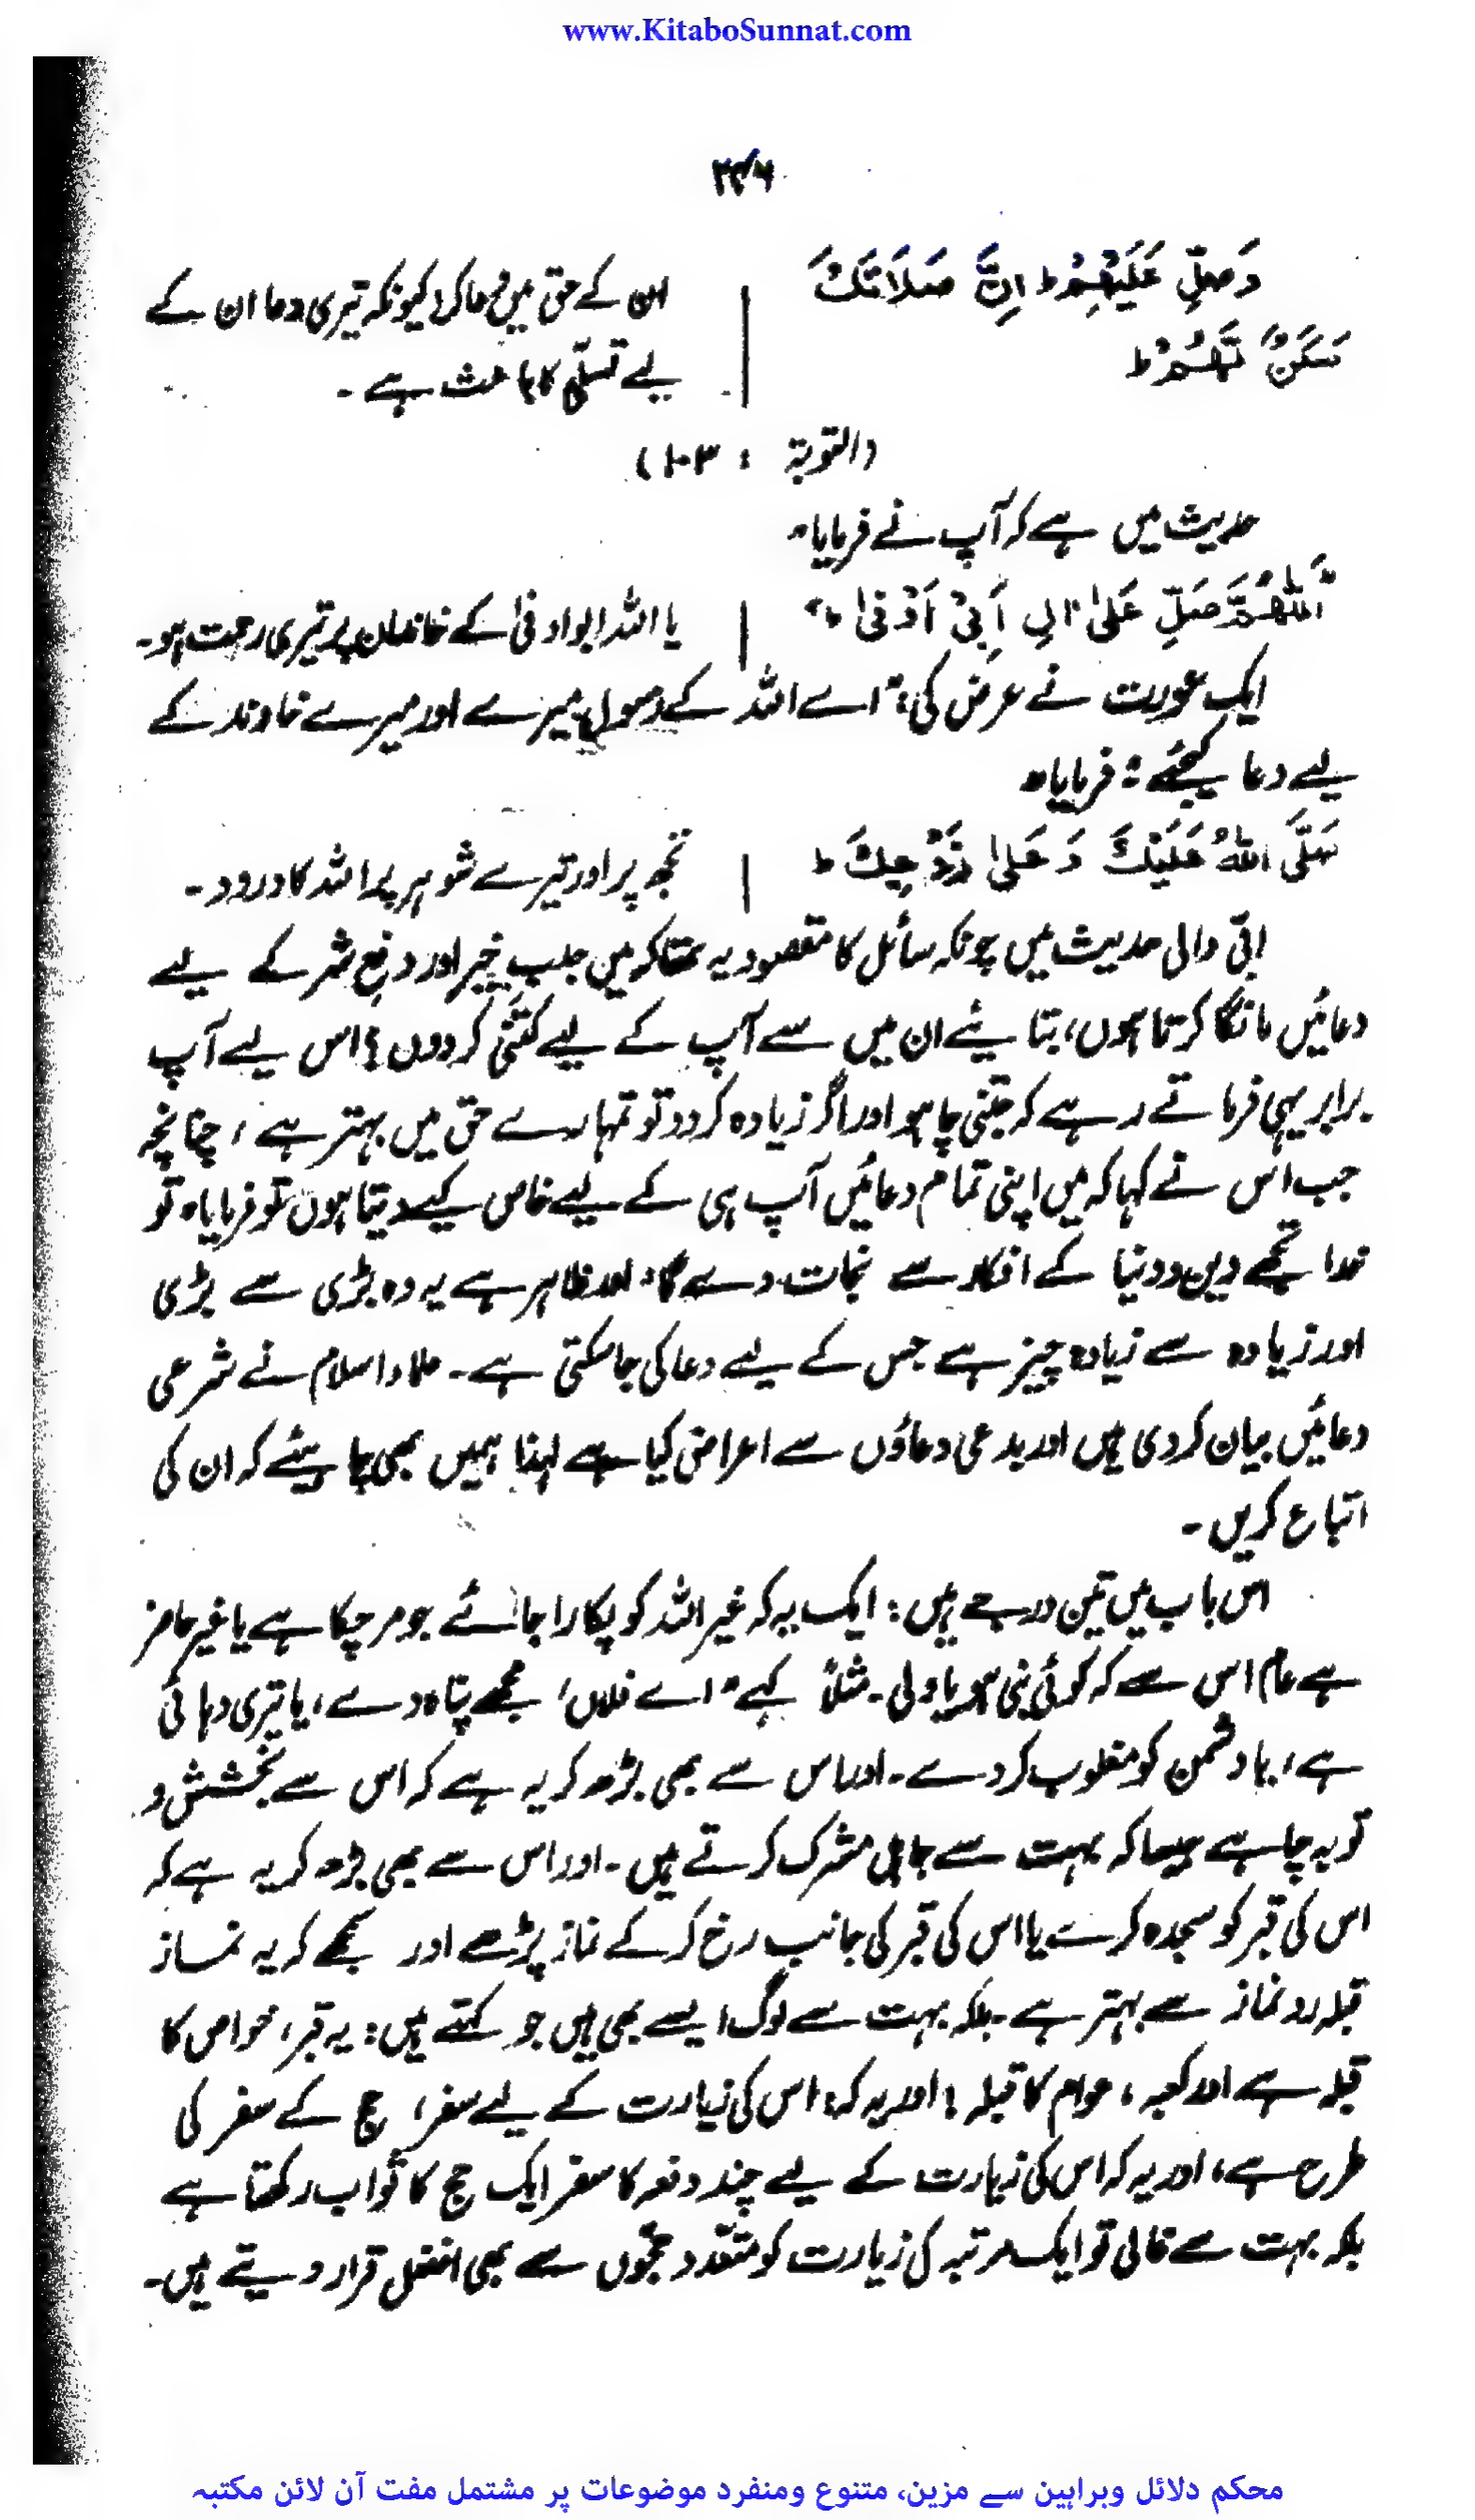 www.KitaboSunnat.com
وَصَلِّ عَلَيْهِمْ ط اِنَّ صَلَاتَكَ | ان کے حق میں دعا کر! کیونکہ تیری دعا ان کے
سَكَنٌ لَّهُمْ ط | لیے تسلّی کا باعث ہے۔
(التوبۃ : ۱۰۳)
حدیث میں ہے کہ آپ نے فرمایا"
اَللّٰهُمَّ صَلِّ عَلىٰ اٰلِ اَبِىْ اَوْفىٰ " | یا اللہ ابو اوفیٰ کے خاندان پر تیری رحمت ہو۔
ایک عورت نے عرض کی: "اے اللہ کے رسول! میرے اور میرے خاوند کے
لیے دعا کیجئے: فرمایا"
صَلَّى اللّٰهُ عَلَيْكَ وَ عَلىٰ زَوْجِكَ ط | تجھ پر اور تیرے شوہر پر اللہ کا درود۔
ابی والی حدیث میں چونکہ سائل کا مقصود یہ تھا کہ میں جلب خیر اور دفع شر کے لیے
دعائیں مانگا کرتا ہوں، بتائیے ان میں سے آپ کے لیے کتنی کر دوں؟ اس لیے آپ
برابر یہی فرماتے رہے کہ جتنی چاہو اور اگر زیادہ کر دو تو تمہارے حق میں بہتر ہے، چنانچہ
جب اس نے کہا کہ میں اپنی تمام دعائیں آپ ہی کے لیے خاص کیے دیتا ہوں تو فرمایا" تو
خدا تجھے دین ودنیا کے افکار سے نجات دے گا" اور ظاہر ہے یہ وہ بڑی سے بڑی
اور زیادہ سے زیادہ چیز ہے جس کے لیے دعا کی جا سکتی ہے۔ علماء اسلام نے شرعی
دعائیں بیان کر دی ہیں اور بدعی دعاؤں سے اعراض کیا ہے لہذا ہمیں بھی چاہیئے کہ ان کی
اتباع کریں۔
اس باب میں تین درجے ہیں: ایک یہ کہ غیر اللہ کو پکارا جائے جو مر چکا ہے یا غیر حاضر
ہے عام اس سے کہ کوئی نبی ہو یا ولی۔ مثلاً کہے "اے فلاں! مجھے پناہ دے، یا تیری دہائی
ہے، یا دشمن کو مغلوب کر دے۔ اور اس سے بھی بڑھ کر یہ ہے کہ اس سے بخشش و
توبہ چاہے جیسا کہ بہت سے جاہل مشرک کرتے ہیں۔ اور اس سے بھی بڑھ کر یہ ہے کہ
اس کی قبر کو سجدہ کرے یا اس کی قبر کی جانب رخ کر کے نماز پڑھے اور سمجھے کہ یہ نماز
قبلہ رو نماز سے بہتر ہے۔ بلکہ بہت سے لوگ ایسے بھی ہیں جو کہتے ہیں: یہ قبر، خواص کا
قبلہ ہے اور کعبہ، عوام کا قبلہ! اور یہ کہ: اس کی زیارت کے لیے سفر، حج کے سفر کی
طرح ہے، اور یہ کہ اس کی زیارت کے لیے چند دفعہ کا سفر ایک حج کا ثواب رکھتا ہے
بلکہ بہت سے غالی تو ایک مرتبہ کی زیارت کو متعدد حجّوں سے بھی افضل قرار دیتے ہیں۔
محکم دلائل وبراہین سے مزین، متنوع ومنفرد موضوعات پر مشتمل مفت آن لائن مکتبہ